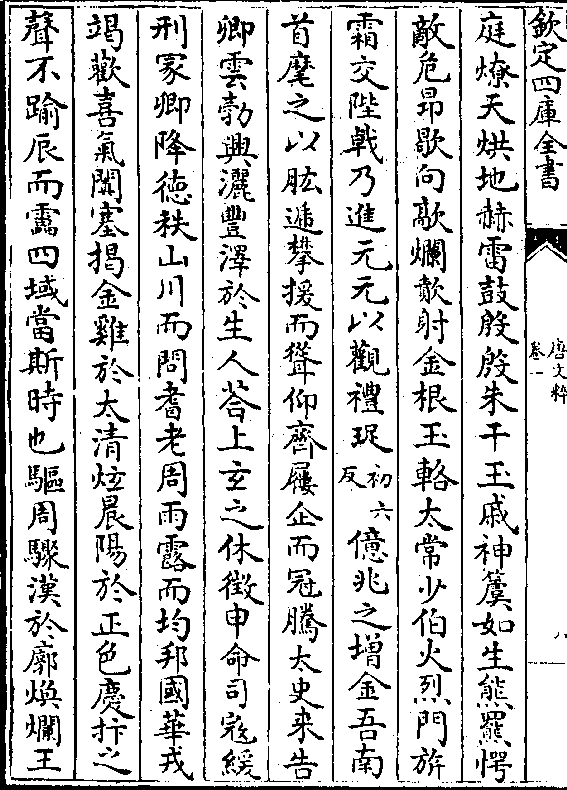 欽定四庫全書
唐文粹
卷一
八
庭燎天烘地赫雷鼓殷殷朱干玉戚神簴如生熊羆愕
敵危昂歇向歊爛歕射金根玉輅太常少伯火烈門旂
霜交陛戟乃進元元以觀禮珿初六反億兆之增金吾南
首麾之以肱遞攀援而聳仰齊屨企而冠騰太史来告
卿雲勃興灑豐澤於生人荅上玄之休徵申命司寇緩
刑冢卿降德秩山川而問耆老周雨露而均邦國華戎
竭歡喜氣闐塞揭金雞於太清炫晨陽於正色慶抃之
聲不踰辰而霑四域當斯時也驅周驟漢於廓煥爛王